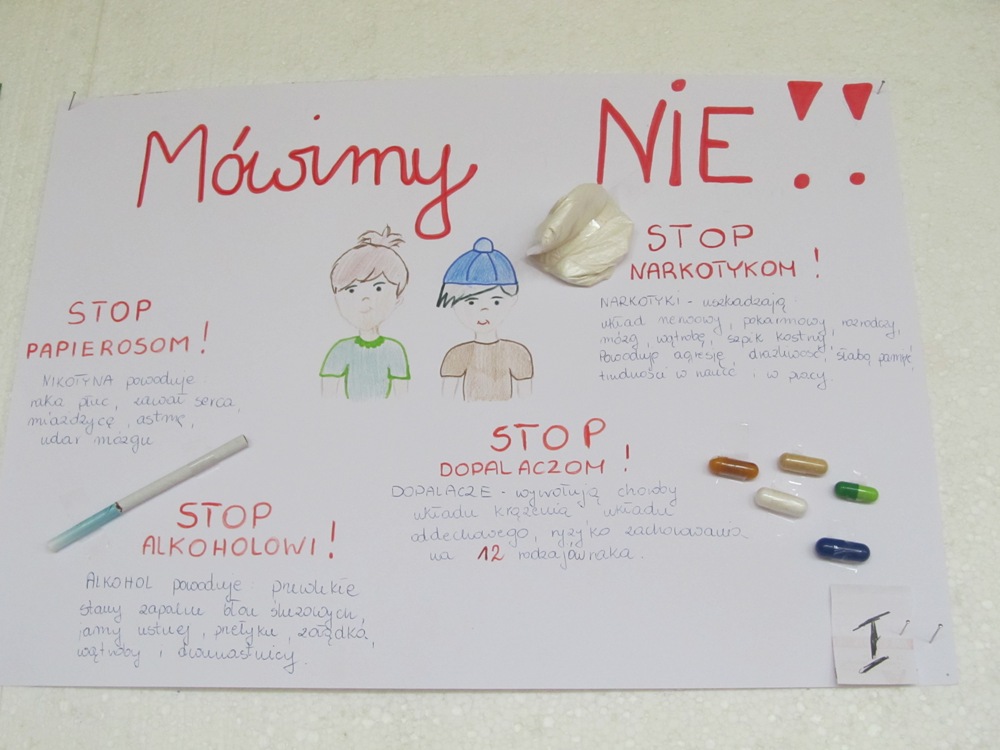 Mówimy NIE!!
STOP
NARKOTYKOM!
NARKOTYKI - uszkadzają
układ nerwowy, pokarmowy, rozrodczy,
mózg, wątrobę, szpik kostny.
Powoduje agresję, drażliwość, słabą pamięć,
trudności w nauce, w pracy.
STOP
PAPIEROSOM!
NIKOTYNA powoduje:
raka płuc, zawał serca,
miażdżycę, astmę,
udar mózgu
STOP
DOPALACZOM!
DOPALACZE - wywołują choroby
układu krążenia układu
oddechowego, ryzyko zachorowania
na 12 rodzajów raka.
STOP
ALKOHOLOWI!
ALKOHOL powoduje: przewlekłe
stany zapalne błon śluzowych,
jamy ustnej, przełyku, żołądka,
wątroby i dwunastnicy.
I